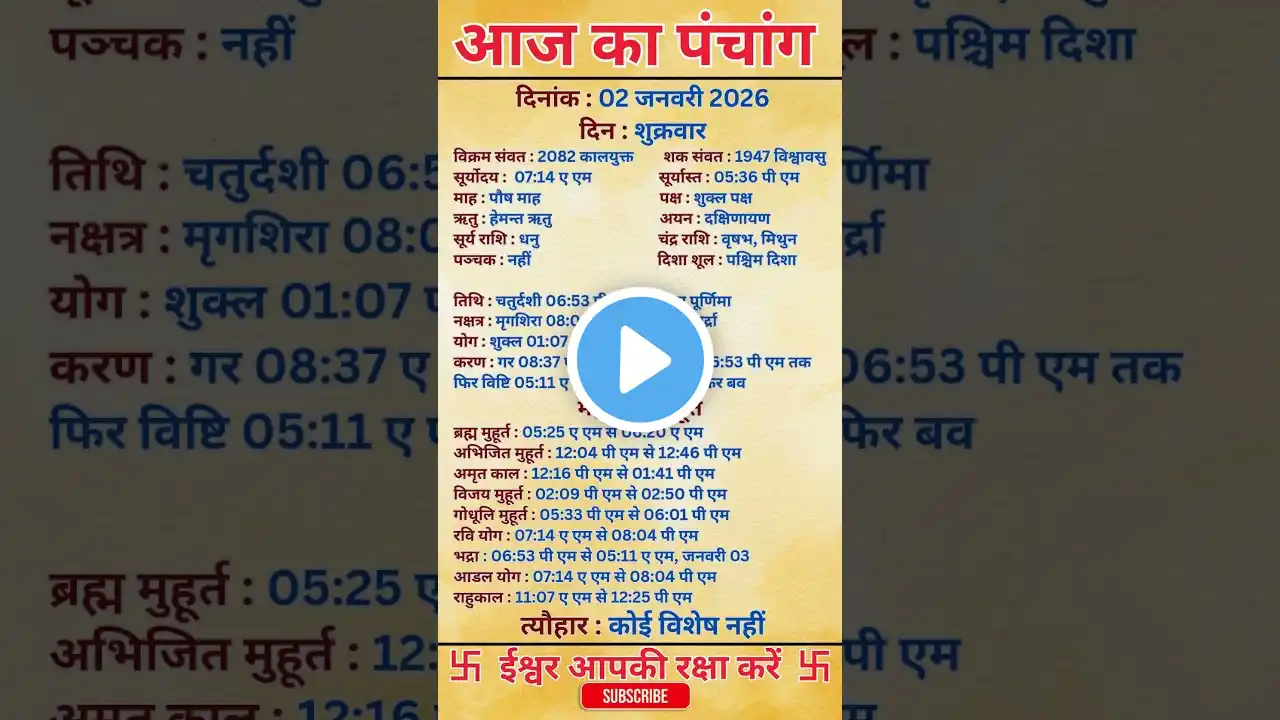 आज का पंचांग
दिनांक : 02 जनवरी 2026
दिन : शुक्रवार
विक्रम संवत : 2082 कालयुक्त शक संवत : 1947 विश्वावसु
सूर्योदय : 07:14 ए एम सूर्यास्त : 05:36 पी एम
माह : पौष माह पक्ष : शुक्ल पक्ष
ऋतु : हेमन्त ऋतु अयन : दक्षिणायण
सूर्य राशि : धनु चंद्र राशि : वृषभ, मिथुन
पञ्चक : नहीं दिशा शूल : पश्चिम दिशा
तिथि : चतुर्दशी 06:53 पूर्णिमा
नक्षत्र : मृगशिरा
योग : शुक्ल 01:07
करण : गर 08:37 06:53 पी एम तक
फिर विष्टि 05:11 ए फिर बव
ब्रह्म मुहूर्त : 05:25 ए एम से 06:20 ए एम
अभिजित मुहूर्त : 12:04 पी एम से 12:46 पी एम
अमृत काल : 12:16 पी एम से 01:41 पी एम
विजय मुहूर्त : 02:09 पी एम से 02:50 पी एम
गोधूलि मुहूर्त : 05:33 पी एम से 06:01 पी एम
रवि योग : 07:14 ए एम से 08:04 पी एम
भद्रा : 06:53 पी एम से 05:11 ए एम, जनवरी 03
आडल योग : 07:14 ए एम से 08:04 पी एम
राहुकाल : 11:07 ए एम से 12:25 पी एम
त्यौहार : कोई विशेष नहीं
卐 ईश्वर आपकी रक्षा करें 卐
SUBSCRIBE